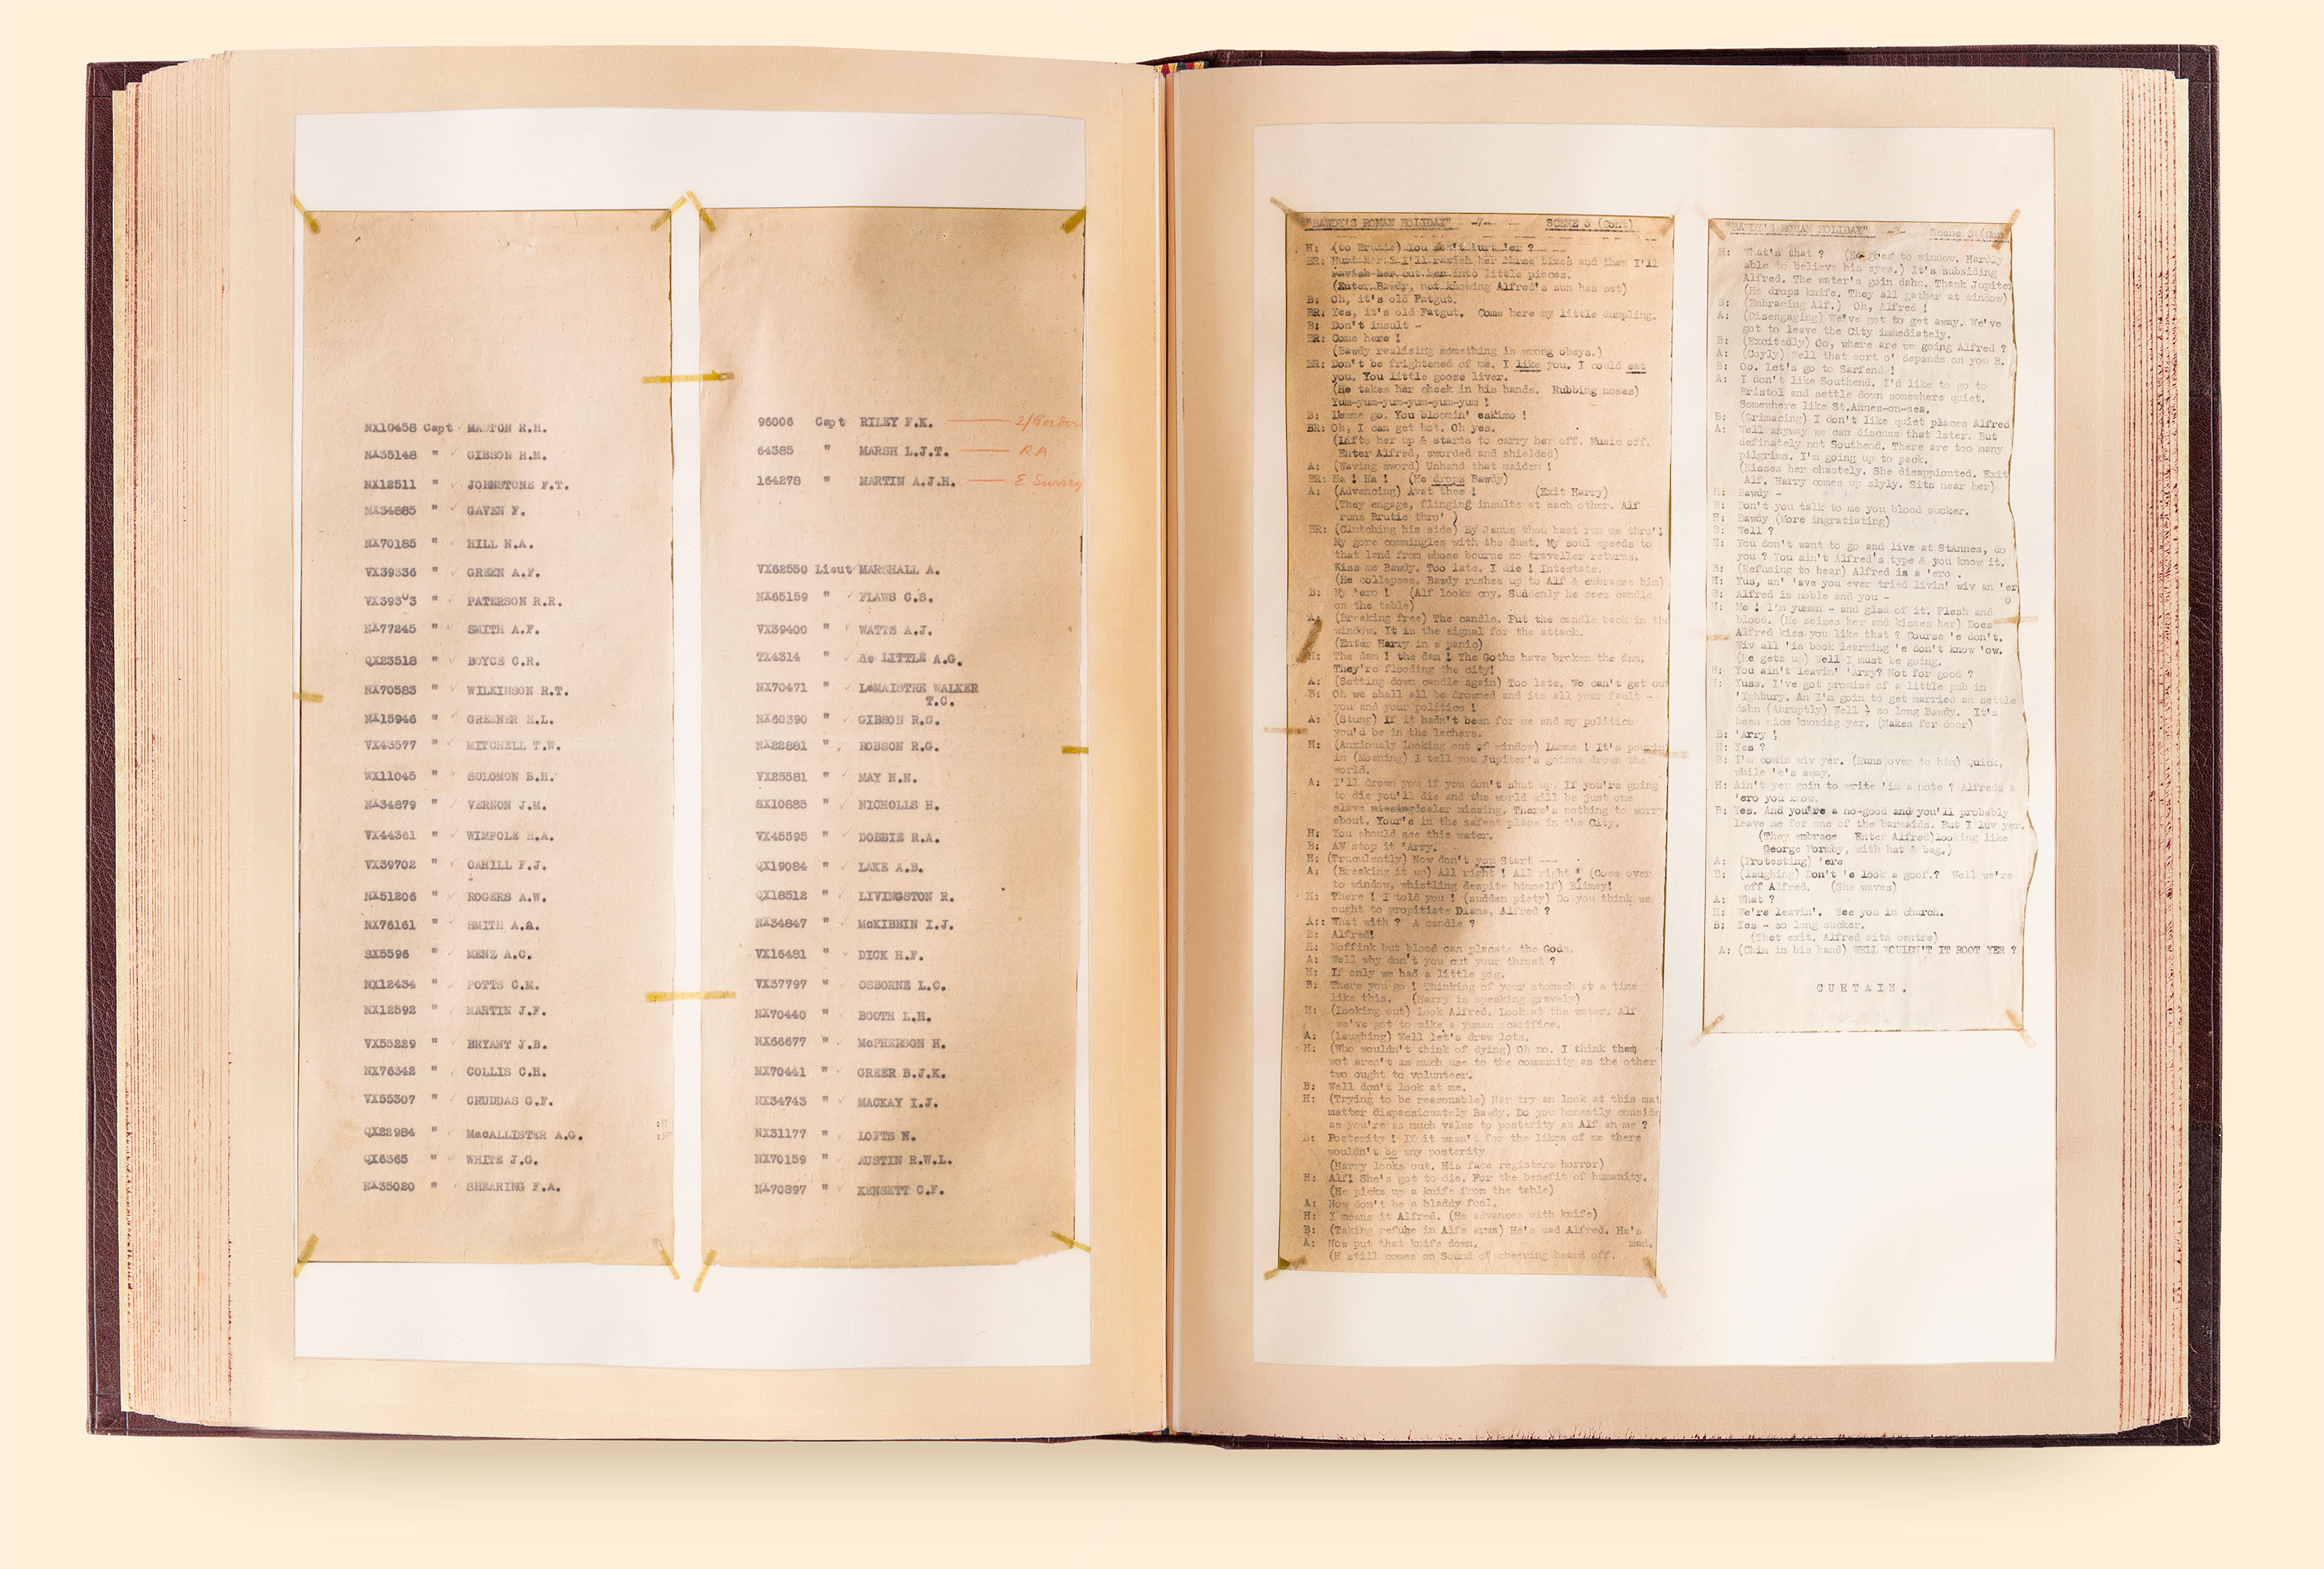 NX10458 Capt MASTON R.H.
NX35148 " GIBSON H.M.
NX12511 " JOHNSTONE F.T.
NX34885 " GAVEN F.
NX70185 " HILL N.A.
VX39336 " GREEN A.F.
VX39303 " PATERSON R.R.
NX77245 " SMITH A.F.
QX23518 " BOYCE C.R.
NX70583 " WILKINSON R.T.
NX15946 " GREENER H.L.
VX43577 " MITCHELL T.W.
WX11045 " SOLOMON B.H.
NX34879 " VERNON J.M.
VX44361 " WIMPOLE H.A.
VX39702 " CAHILL F.J.
NX51206 " ROGERS A.W.
NX76161 " SMITH A.A.
SX5596 " MENZ A.C.
NX12434 " POTTS C.M.
NX12592 " MARTIN J.F.
VX53229 " BRYANT J.B.
NX76342 " COLLIS C.H.
VX55307 " CHUDDAS G.F.
QX22984 " MacALLISTER A.G.
QX6365 " WHITE J.G.
NX35020 " SHEARING F.A.
96006 Capt RILEY F.K. 2/Gordon
64385 " MARSH L.J.T. RA
164278 " MARTIN A.J.H. E Surrey
VX62550 Lieut MARSHALL A.
NX65159 " FLAWS C.S.
VX39400 " WATTS A.J.
TX4314 " de LITTLE A.G.
NX70471 " LeMAISTRE WALKER
T.C.
NX60390 " GIBSON R.G.
NX22881 " ROBSON R.G.
VX25581 " MAY N.N.
SX10885 " NICHOLLS H.
VX45595 " DOBBIE R.A.
QX19084 " LAKE A.B.
QX18512 " LIVINGSTON R.
NX34847 " McKIBBIN I.J.
VX16481 " DICK H.F.
VX37797 " OSBORNE L.C.
NX70440 " BOOTH L.H.
NX66677 " McPHERSON H.
NX70441 " GREER B.J.K.
NX34743 " MACKAY I.J.
NX31177 " LOFTS N.
NX70159 " AUSTIN R.W.L.
NX70897 " KENSETT C.F.
"BAWDY'S ROMAN HOLIDAY" -7- SCENE 3 (Cont)
H: (to Brutie) You don't hurt her ?
BR: I'll ravish her three times and then I'll
ravish her cut her into little pieces.
(Enter Bawdy, not knowing Alfred's sun has set)
B: Oh, it's old Fatgut.
BR: Yes, it's old Fatgut. Come here my little dumpling.
B: Don't insult -
BR: Come here !
(Bawdy realising something is wrong obeys.)
BR: Don't be frightened of me. I like you. I could eat
you. You little goose liver.
(He takes her cheek in his hands. Rubbing noses)
Yum-yum-yum-yum-yum-yum !
B: Lemme go. You bloomin' eskimo !
BR: Oh, I can get hot. Oh yes.
(Lifts her up & starts to carry her off. Music off.
Enter Alfred, sworded and shielded)
A: (Waving sword) Unhand that maiden !
BR: Ha ! Ha ! (He drops Bawdy)
A: (Advancing) Avat thee ! (Exit Harry)
(They engage, flinging insults at each other. Alf
runs Brutie thro')
BR: (Clutching his side) By Janus thou hast run me thro'!
My gore commingles with the dust. My soul speeds to
that land from whose bourne no traveller returns.
Kiss me Bawdy. Too late. I die ! Intestate.
(He collapses. Bawdy rushes up to Alf & embraces him)
B: My 'ero ! (Alf looks coy. Suddenly he sees candle
on the table)
A: (Breaking free) The candle. Put the candle back in the
window. It is the signal for the attack.
(Enter Harry in a panic)
H: The dam ! the dam ! The Goths have broken the dam.
They're flooding the city!
A: (Setting down candle again) Too late. We can't get out
B: Oh we shall all be drowned and its all your fault -
you and your politics !
A: (Stung) If it hadn't been for me and my politics
you'd be in the lechers.
H: (Anxiously looking out of window) Lumme ! It's pouring
in (Moaning) I tell you Jupiter's goinna drown the
world.
A: I'll drown you if you don't shut up. If you're going
to die you'll die and the world will be just one
slave missingdealer missing. There's nothing to worry
about. Your'e in the safest place in the City.
H: You should see this water.
B: AW stop it 'Arry.
H: (Truculently) Now don't you Start ---
A: (Breaking it up) All right ! All right ! (Goes over
to window, whistling despite himself) Blimey!
H: There ! I told you ! (sudden piety) Do you think we
ought to propitiate Diana, Alfred ?
A:: What with ? A candle ?
B: Alfred!
H: Noffink but blood can placate the Gods.
A: Well why don't you cut your throat ?
H: If only we had a little pig.
B: There you go ! Thinking of your stomach at a time
like this. (Harry is speaking gravely)
H: (Looking out) Look Alfred. Look at the water. Alf
we've got to mike a yuman scarifice.
A: (Laughing) Well let's draw lots.
H: (Who wouldn't think of dying) Oh no. I think them
wot aren't as much use to the community as the other
two ought to volunteer.
B: Well don't look at me.
H: (Trying to be reasonable) Nar try an look at this mat
matter dispassionately Bawdy. Do you honestly conside
as you're as much value to posterity as Alf an me ?
B: Posterity ! If it wasn't for the likes of me there
wouldn't be any posterity
(Harry looks out. His face registers horror)
H: Alf! She's got to die. For the benefit of humanity.
(He picks up a knife from the table)
A: Now don't be a bladdy fool.
H: I means it Alfred. (He advances with knife)
B: (Taking refuge in Alfs arms) He's mad Alfred. He's
mad.
A: Now put that knife down.
(H still comes on Sound of cheering heard off.
"BAWDY'S ROMAN HOLIDAY" Scene 3 (Con
H: What's that ? (He goes to window. Hardly
able to believe his eyes.) It's subsiding
Alfred. The water's goin dahn. Thank Jupiter
(He drops knife. They all gather at window)
B: (Embracing Alf.) Oh, Alfred !
A: (Disengaging) We've got to get away. We've
got to leave the City immediately.
B: (Excitedly) Oo, where are we going Alfred ?
A: (Coyly) Well that sort o' depends on you B.
B: Oo. Let's go to Sarfend !
A: I don't like Southend. I'd like to go to
Bristol and settle down somewhere quiet.
Somewhere like St.Annes-on-sea.
B: (Grimacing) I don't like quiet places Alfred
A: Well anyway we can discuss that later. But
definately not Southend. There are too many
pilgrims. I'm going up to pack.
(Kisses her chastely. She disappionted. Exit
Alf. Harry comes up slyly. Sits near her)
H: Bawdy -
B: Don't you talk to me you blood sucker.
H: Bawdy (More ingratiating)
B: Well ?
H: You don't want to go and live at StAnnes, do
you ? You ain't Alfred's type & you know it.
B: (Refusing to hear) Alfred is a 'ero .
H: Yus, an' 'ave you ever tried livin' wiv an 'er
o
B: Alfred is noble and you -
H: Me ! I'm yuman - and glad of it. Flesh and
blood. (He seizes her and kisses her) Does
Alfred kiss you like that ? Course 'e don't.
Wiv all 'is book learning 'e don't know 'ow.
(He gets up) Well I must be going.
B: You ain't leavin' 'Arry? Not for good ?
H: Yuss. I've got promise of a little pub in
'Ighbury. An I'm goin to get married an settle
dahn (Abruptly) Well, so long Bawdy. It's
been nice knowing yer. (Makes for door)
B: 'Arry !
H: Yes ?
B: I'm comin wiv yer. (Runs over to him) Quick,
while 'e's away.
H: Ain't yer goin to write 'im a note ? Alfreds a
'ero you know.
B: Yes. And you're a no-good and you'll probably
leave me for one of the barmaids. But I luv yer.
(They embrace Enter Alfred)looking like
George Formby, with hat & bag.)
A: (Protesting) 'ere
B: (laughing) Don't 'e look a goof.? Well we're
off Alfred. (She waves)
A: What ?
H: We're leavin'. See you in church.
B: Yes - so long sucker.
(Thet exit. Alfred sits centre)
A: (Chin in his hand) WELL WOULDN'T IT ROOT YER ?
CURTAIN.